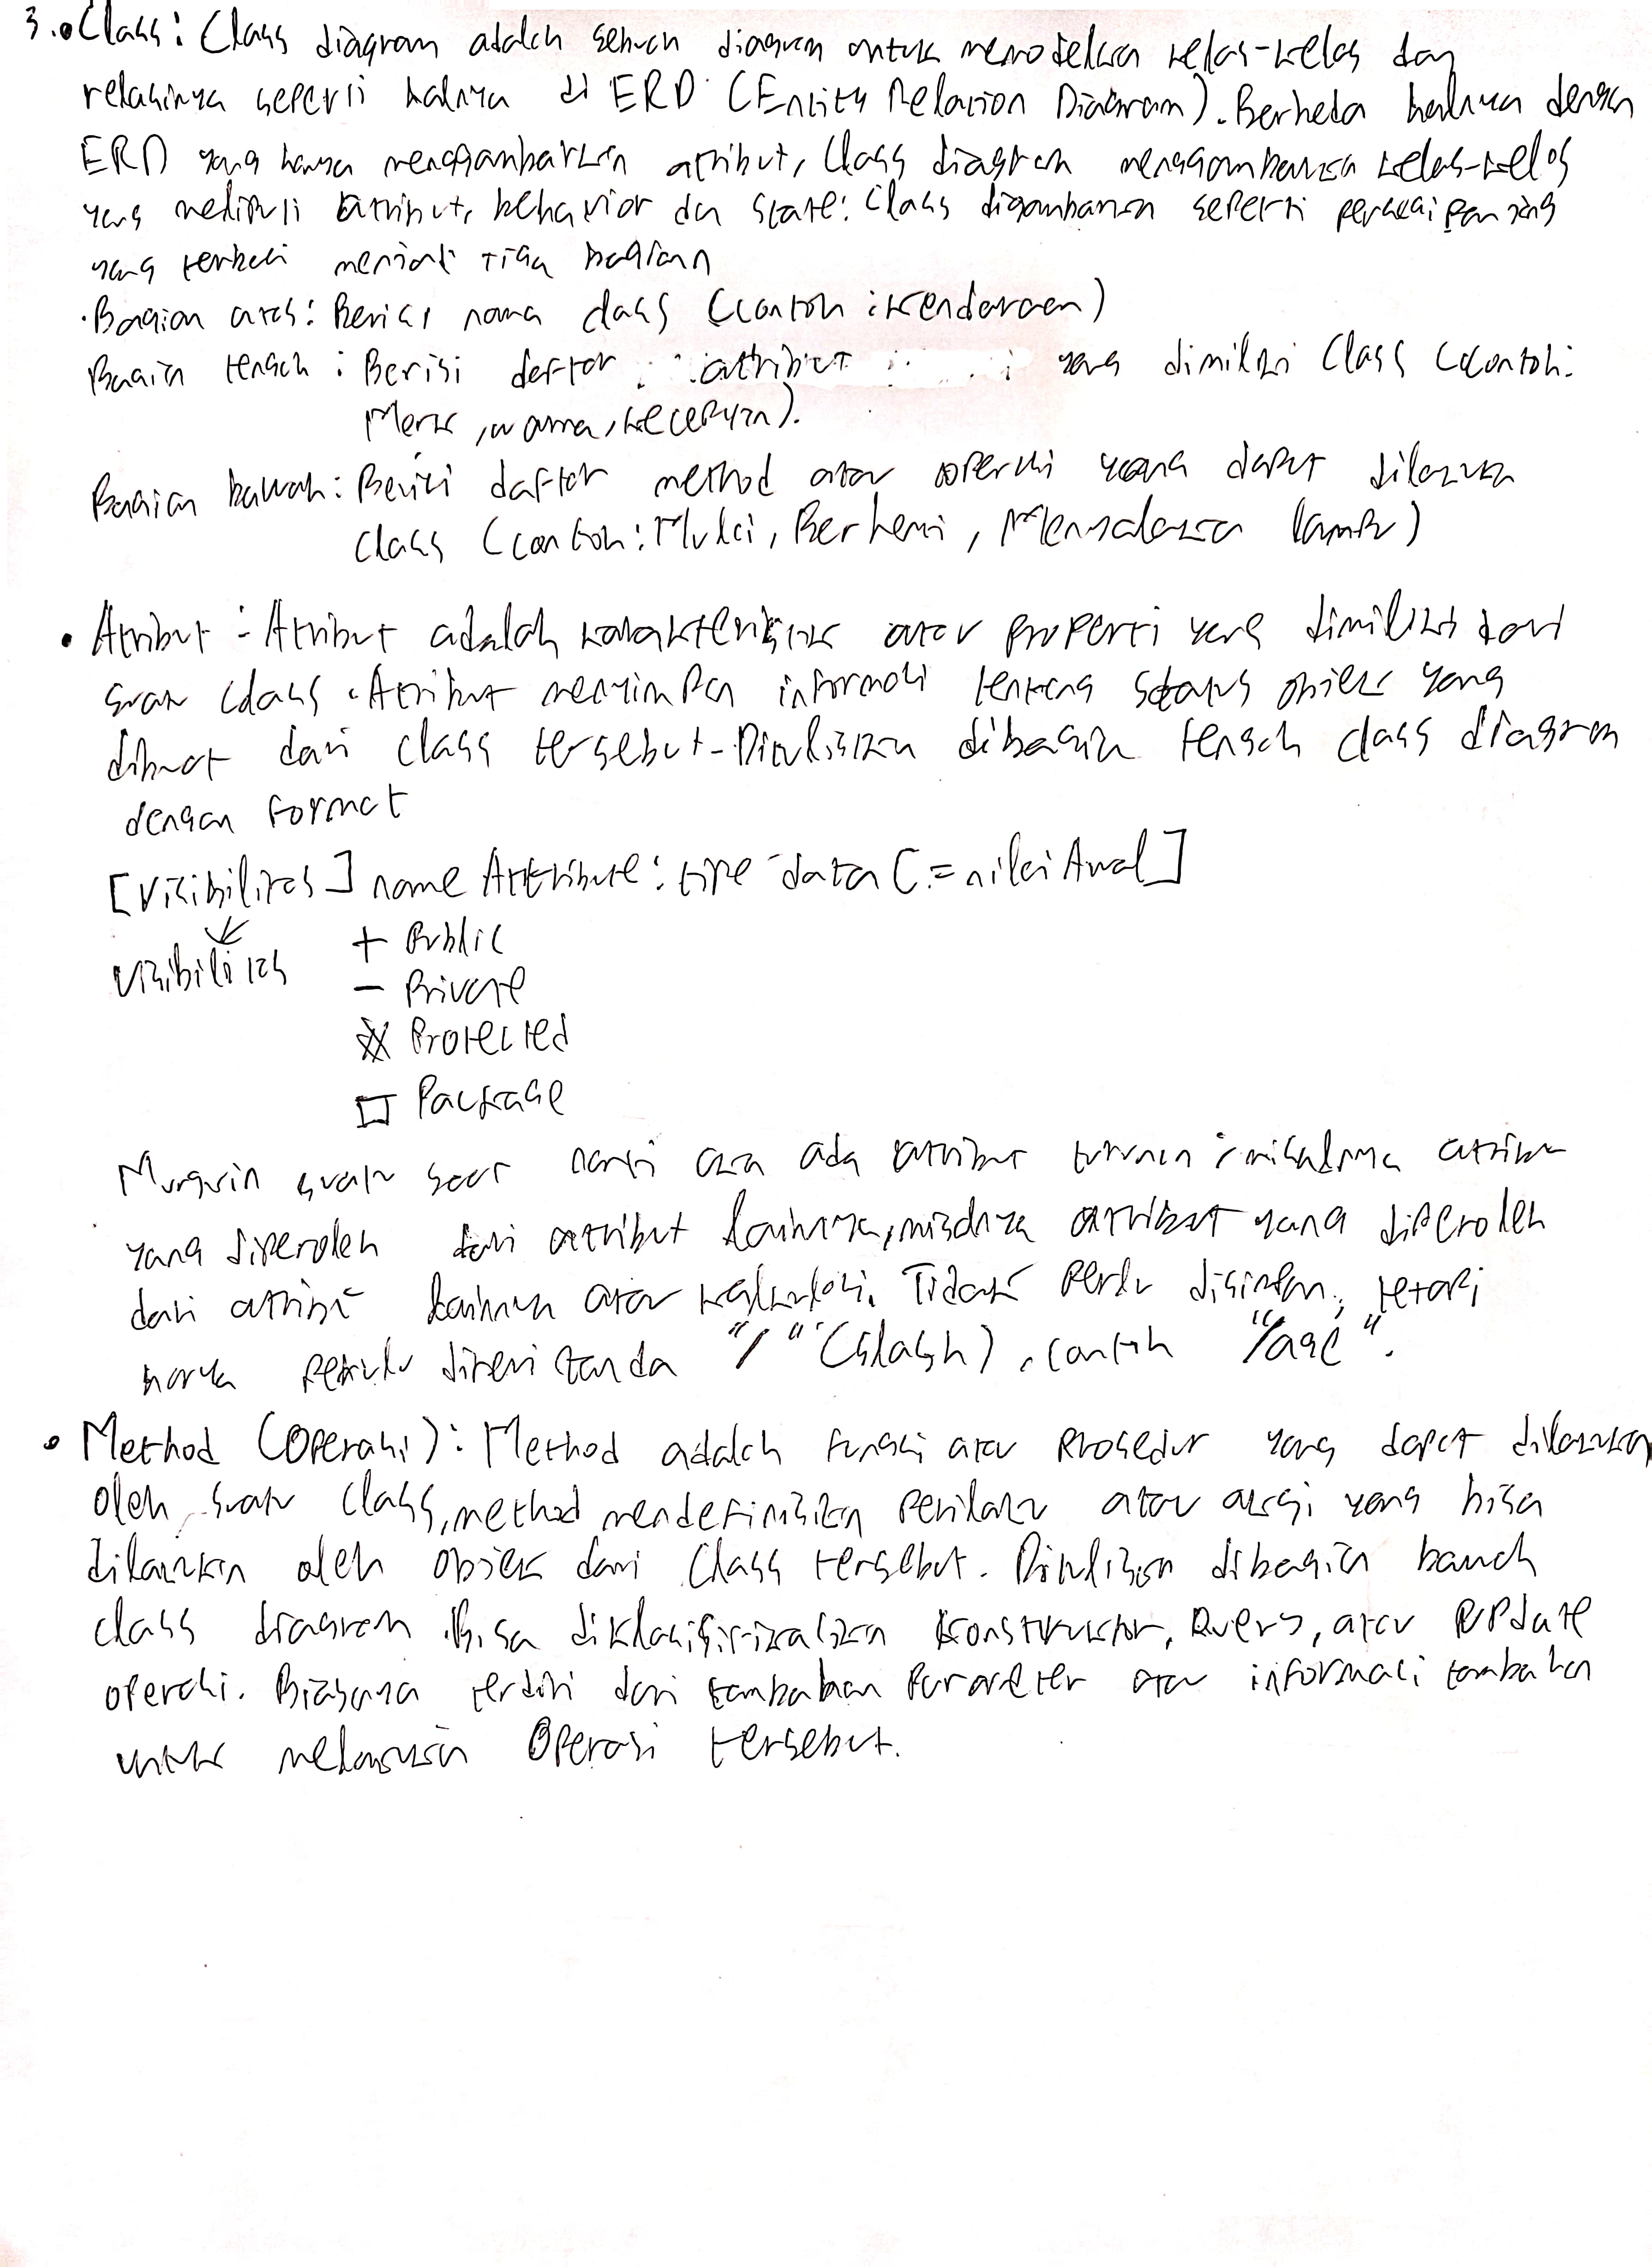 3. • Class : Class diagram adalah sebuah diagram untuk memodelkan kelas-kelas dan
relasinya seperti halnya di ERD (Entity Relation Diagram). Berbeda halnya dengan
ERD yang hanya menggambarkan atribut, Class diagram menggambarkan kelas-kelas
yang meliputi atribut, behavior dan state. Class digambarkan seperti persegi panjang
yang terbagi menjadi tiga bagian
• Bagian atas : Berisi nama class (contoh : Kendaraan)
Bagian tengah : Berisi daftar attribut yang dimiliki Class (Contoh:
Merk, warna, kecepatan).
Bagian bawah : Berisi daftar method atau operasi yang dapat dilakukan
class (contoh : Mulai, Berhenti, Menyalakan lampu)
• Atribut : Atribut adalah karakteristik atau properti yang dimiliki dari
suatu class. Atribut menyimpan informasi tentang status objek yang
dibuat dari class tersebut. Dituliskan dibagian tengah class diagram
dengan format
[Visibilitas] name Attribute : tipe data [= nilai Awal]
↓
Visibilitas
+ Public
- Private
# Protected
□ Package
Mungkin suatu saat nanti akan ada atribut turunan, misalnya atribut
yang diperoleh dari atribut lainnya, misalnya atribut yang diperoleh
dari atribut lainnya atau kalkulasi. Tidak perlu disimpan, tetapi
hanya perlu diberi tanda "/" (slash), contoh "/age".
• Method (Operasi) : Method adalah fungsi atau prosedur yang dapat dilakukan
oleh suatu class, method mendefinisikan perilaku atau aksi yang bisa
dilakukan oleh objek dari Class tersebut. Dituliskan dibagian bawah
class diagram. Bisa diklasifikasikan Konstruktor, Query, atau Update
operasi. Biasanya terdiri dari tambahan parameter atau informasi tambahan
untuk melakukan Operasi tersebut.